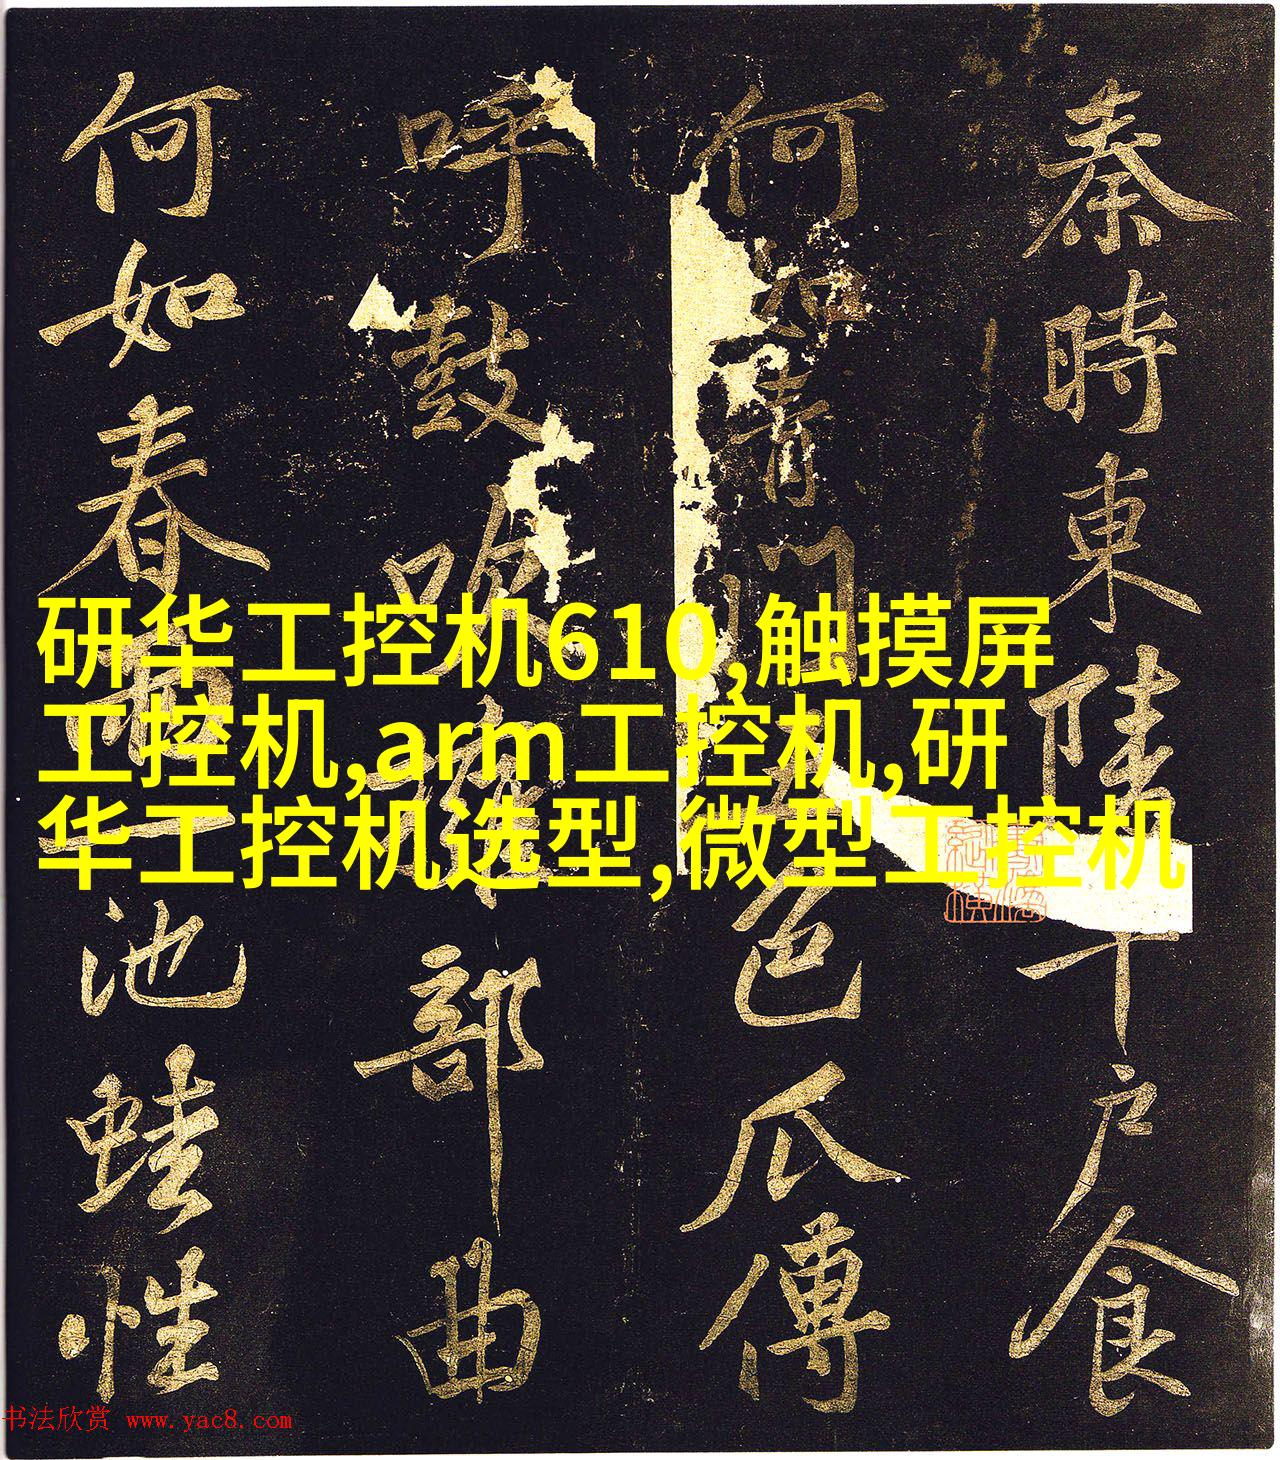 秦時東陵千戶食
何如青門五色瓜傳
呼鼓吹部曲
何如春雨池蛙性
研华工控机610,触摸屏
工控机,arm工控机,研
华工控机选型,微型工控机
书法欣赏 www.yac8.com